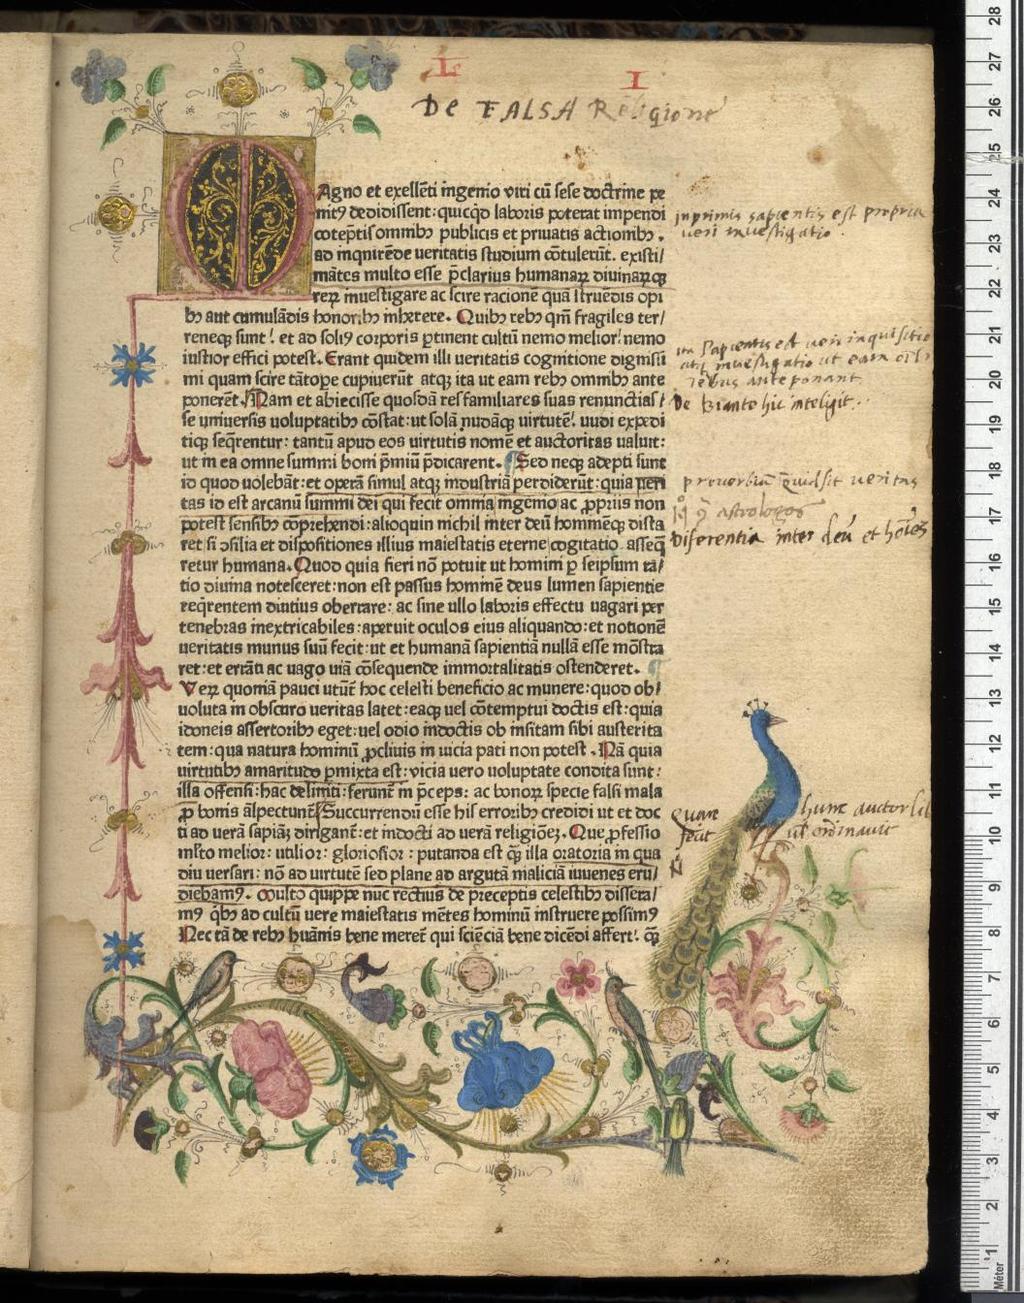 L I
DE FALSA Religione
MAgno et exellēti ingenio viri cū sese doctrine pe
nitꝰ dedidissent: quicqd laboris poterat impendi
cōtēptis omnibꝫ publicis et priuatis actionibꝫ.
ad inqnirēde veritatis studium cōtulerūt. existi/
mātes multo esse p̄clarius humanaꝝ diuinaꝝqꝫ
reꝝ inuestigare ac scire racionē quā ſtruēdis opi
bꝫ aut cumulādis honoribꝫ inherere. Quibꝫ rebꝫ qm̄ fragiles ter/
reneqꝫ sunt: et ad soliꝰ corporis ꝑtinent cultū nemo melior: nemo
iustior effici potest. Erant quidem illi veritatis cognitione dignissi
mi quam scire tātope cupiuerūt atqꝫ ita ut eam rebꝫ omnibꝫ ante
ponerēt. Nam et abiecisse quosdā res familiares suas renunciaſ/
se uniuersis voluptatibꝫ cōstat: ut solā nudāqꝫ virtutē: nudi expedi
tiqꝫ seq̄rentur: tantū apud eos virtutis nomē et auctoritas ualuit:
ut in ea omne summi boni p̄miū p̄dicarent. Sed neqꝫ adepti sunt
id quod uolebāt: et operā simul atqꝫ industriā perdiderūt: quia ueri
tas id est arcanū summi dei qui fecit omnia ingenio ac ꝓpriis non
potest sensibꝫ cōprehendi: alioquin nichil inter deū hominēqꝫ dista
ret si ↄsilia et dispositiones illius maiestatis eterne cogitatio asseq̄
retur humana. Quod quia fieri nō potuit ut homini ꝑ seipsum ra/
tio diuina notesceret: non est passus hominē deus lumen sapientie
req̄rentem diutius oberrare: ac sine ullo laboris effectu uagari per
tenebras inextricabiles: aperuit oculos eius aliquando: et notionē
ueritatis munus suū fecit: ut et humanā sapientiā nullā esse mōstra
ret: et errāti ac uago uiā cōsequende immortalitatis ostenderet.
Veꝝ quoniā pauci utūt hoc celesti beneficio ac munere: quod ob/
uoluta in obscuro ueritas latet: eaqꝫ uel cōtemptui doctis est: quia
idoneis assertoribꝫ eget: uel odio indoctis ob insitam sibi austerita
tem: qua natura hominū ꝓcliuis in uicia pati non potest. Nā quia
uirtutibꝫ amaritudo ꝑmixta est: vicia uero uoluptate condita sunt:
illa offensi: hac deliniti: ferunt in p̄ceps: ac bonoꝝ specie falsi mala
ꝓ bonis āplectunt. Succurrendū esse his erroribꝫ credidi ut et doc
ti ad uerā sapiāꝫ dirigant: et indocti ad uerā religiōeꝫ. Que ꝓfessio
mlto melior: utilior: gloriosior: putanda est qꝫ illa oratoria in qua
diu uersati: nō ad uirtutē sed plane ad argutā maliciā iuuenes eru/
diebamꝰ. Multo quippe nūc rectius de preceptis celestibꝫ dissera/
mꝰ qbꝫ ad cultū uere maiestatis mētes hominū instruere possimꝰ
Nec tā de rebꝫ huānis bene meret qui sciēciā bene dicēdi affert: qꝫ
inprimis sapientis est propria
ueri inuestigatio.
ita Sapientis est ueri inquisitio
inuestigatio ut eam
rebus anteponant
De hic inteligit.
prouerbiū Quid sit ueritas
astrologos
Diferentia inter deū et hoīes
Quare hunc auctor
fecit ordinauit